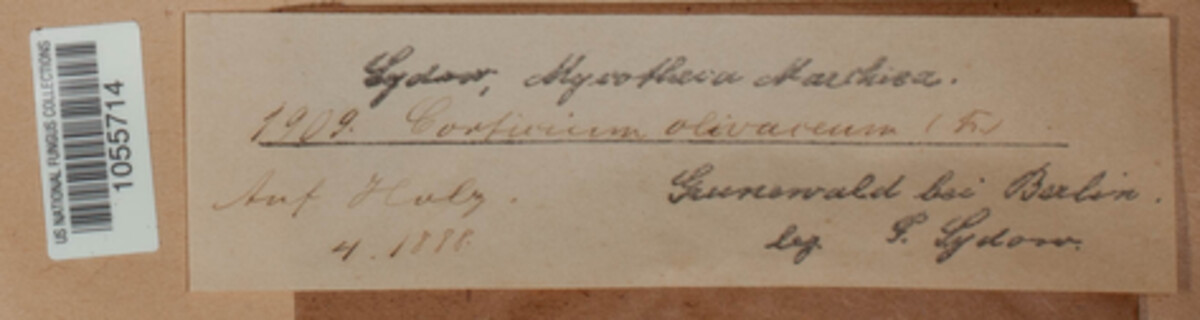 US NATIONAL FUNGUS COLLECTIONS
1055714
Sydow, Mycotheca Marchica.
1909. Corticium olivaceum (Fr.)
Auf Holz.
4. 1888.
Grunewald bei Berlin.
leg. P. Sydow.